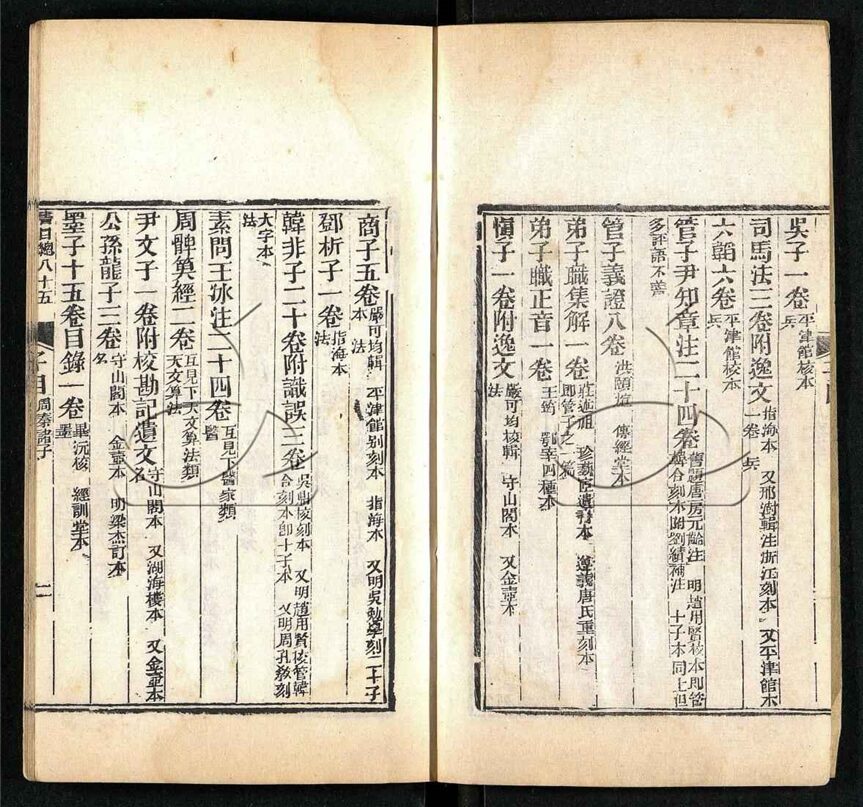 吳子一卷 平津館校本 兵
司馬法三卷附逸文一卷 指海本 又邢澍輯注浙江刻本 又平津館本 兵
六韜六卷 平津館校本 兵
管子尹知章注二十四卷 舊題唐房元齡注 明趙用賢校本卽管韓合刻本附劉績補注 十子本同上但
多評語不善
管子義證八卷 洪頤煊 傳經堂本
弟子職集解一卷 莊述祖 珍藝宧遺書本 遵義唐氏重刻本 卽管子之一篇
弟子職正音一卷 王筠 鄂宰四種本
愼子一卷附逸文 嚴可均校輯 守山閣本 又金壺本 法
商子五卷 嚴可均輯 平津館別刻本 指海本 又明吳勉學刻二十子本 法
鄧析子一卷 指海本 法
韓非子二十卷附識誤三卷 吳鼒校刻本 又明趙用賢校管韓合刻本卽十子本 又明周孔敎刻
大字本 法
素問王冰注二十四卷 互見下醫家類 醫
周髀算經二卷 互見下天文算法類 天文算法
尹文子一卷附校勘記遺文 守山閣本 又湖海樓本 又金壺本 名
公孫龍子三卷 守山閣本 金壺本 明梁杰訂本 名
墨子十五卷目錄一卷 畢沅校 經訓堂本 墨
書目總八十五 子目 周秦諸子 二